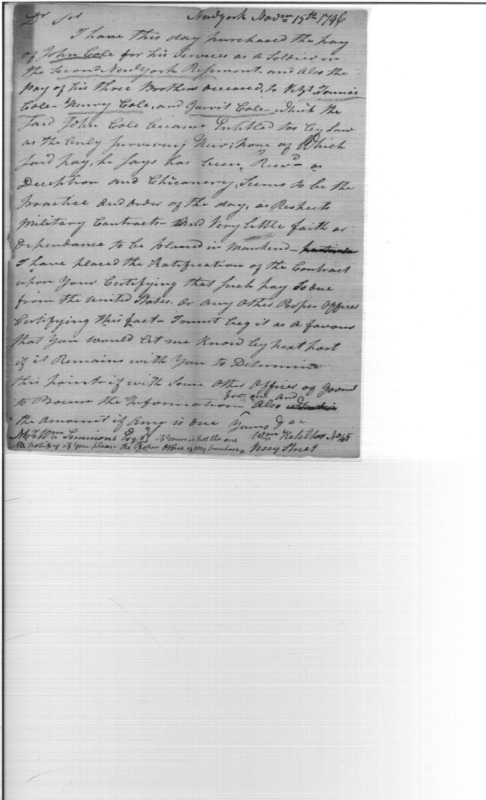 Dr Sir Newyork Novr 15th 1796
I have this day purchased the pay
of John Cole for his Services as a Soldier in
the Second NewYork Regiment and Also the
pay of his three Brothers deceased, to Wit, Tennis
Cole Henny Cole, and Garrit Cole, which the
Said John Cole became Entitled too by Law
as the Only Surviving Heir, None of Which
said pay, he Says has been Recd as
Deception and Chicanery, Seems to be the
practice and order of the day, as Respects
Military Contracts And Very little faith or
Dependance to be placed in Mankind
I have placed the Ratification of the Contract
upon Your Certifying that Such pay is due
from the United States. or Any Other Proper Officer
Certifying this fact I must beg it as a favour
that You would let me know by next post
if it Remains with You to Determine
this point if with Some Other Officer
to Procure the Information for me And Also
the Amount if Any is due Yours &c
Wm Simmons Esqr if Yours is not the
to Notify if You please the Proper Office of My purchase
Wm No 65
Vesey Street